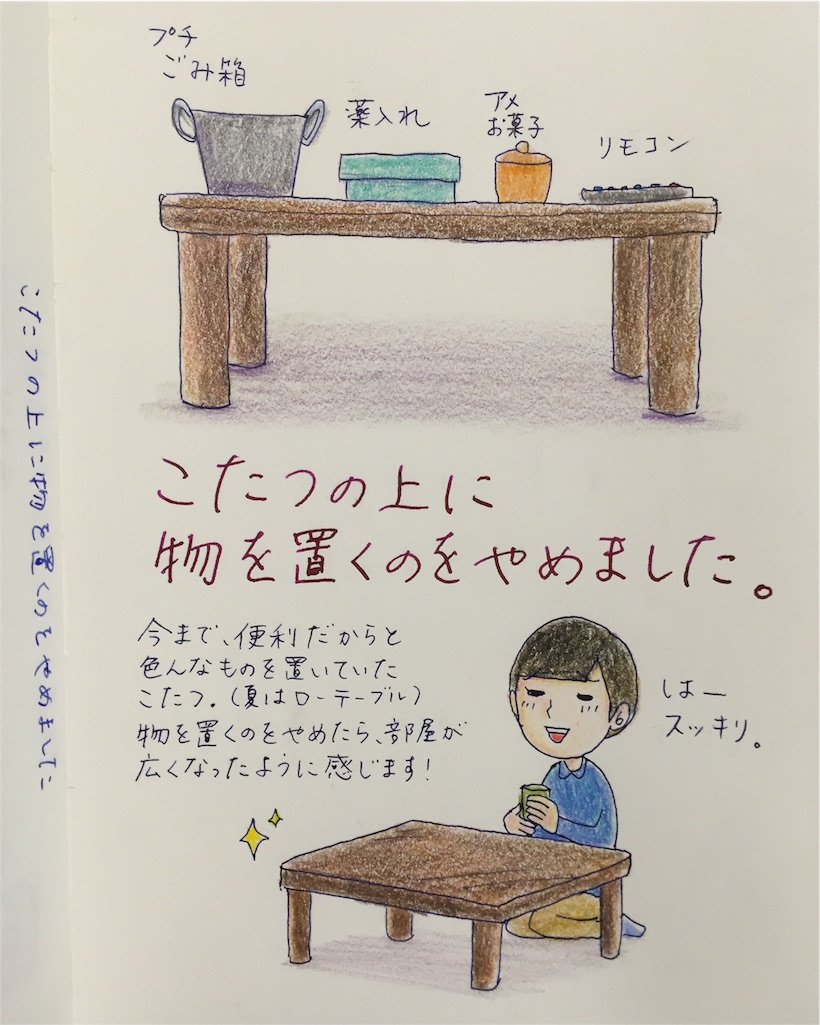 プチ
ごみ箱
薬入れ
アメ
お菓子
リモコン
こたつの上に
物を置くのをやめました。
今まで、便利だからと
色んなものを置いていた
こたつ。(夏はローテーブル)
物を置くのをやめたら、部屋が
広くなったように感じます!
はー
スッキリ。
こたつの上に物を置くのをやめました